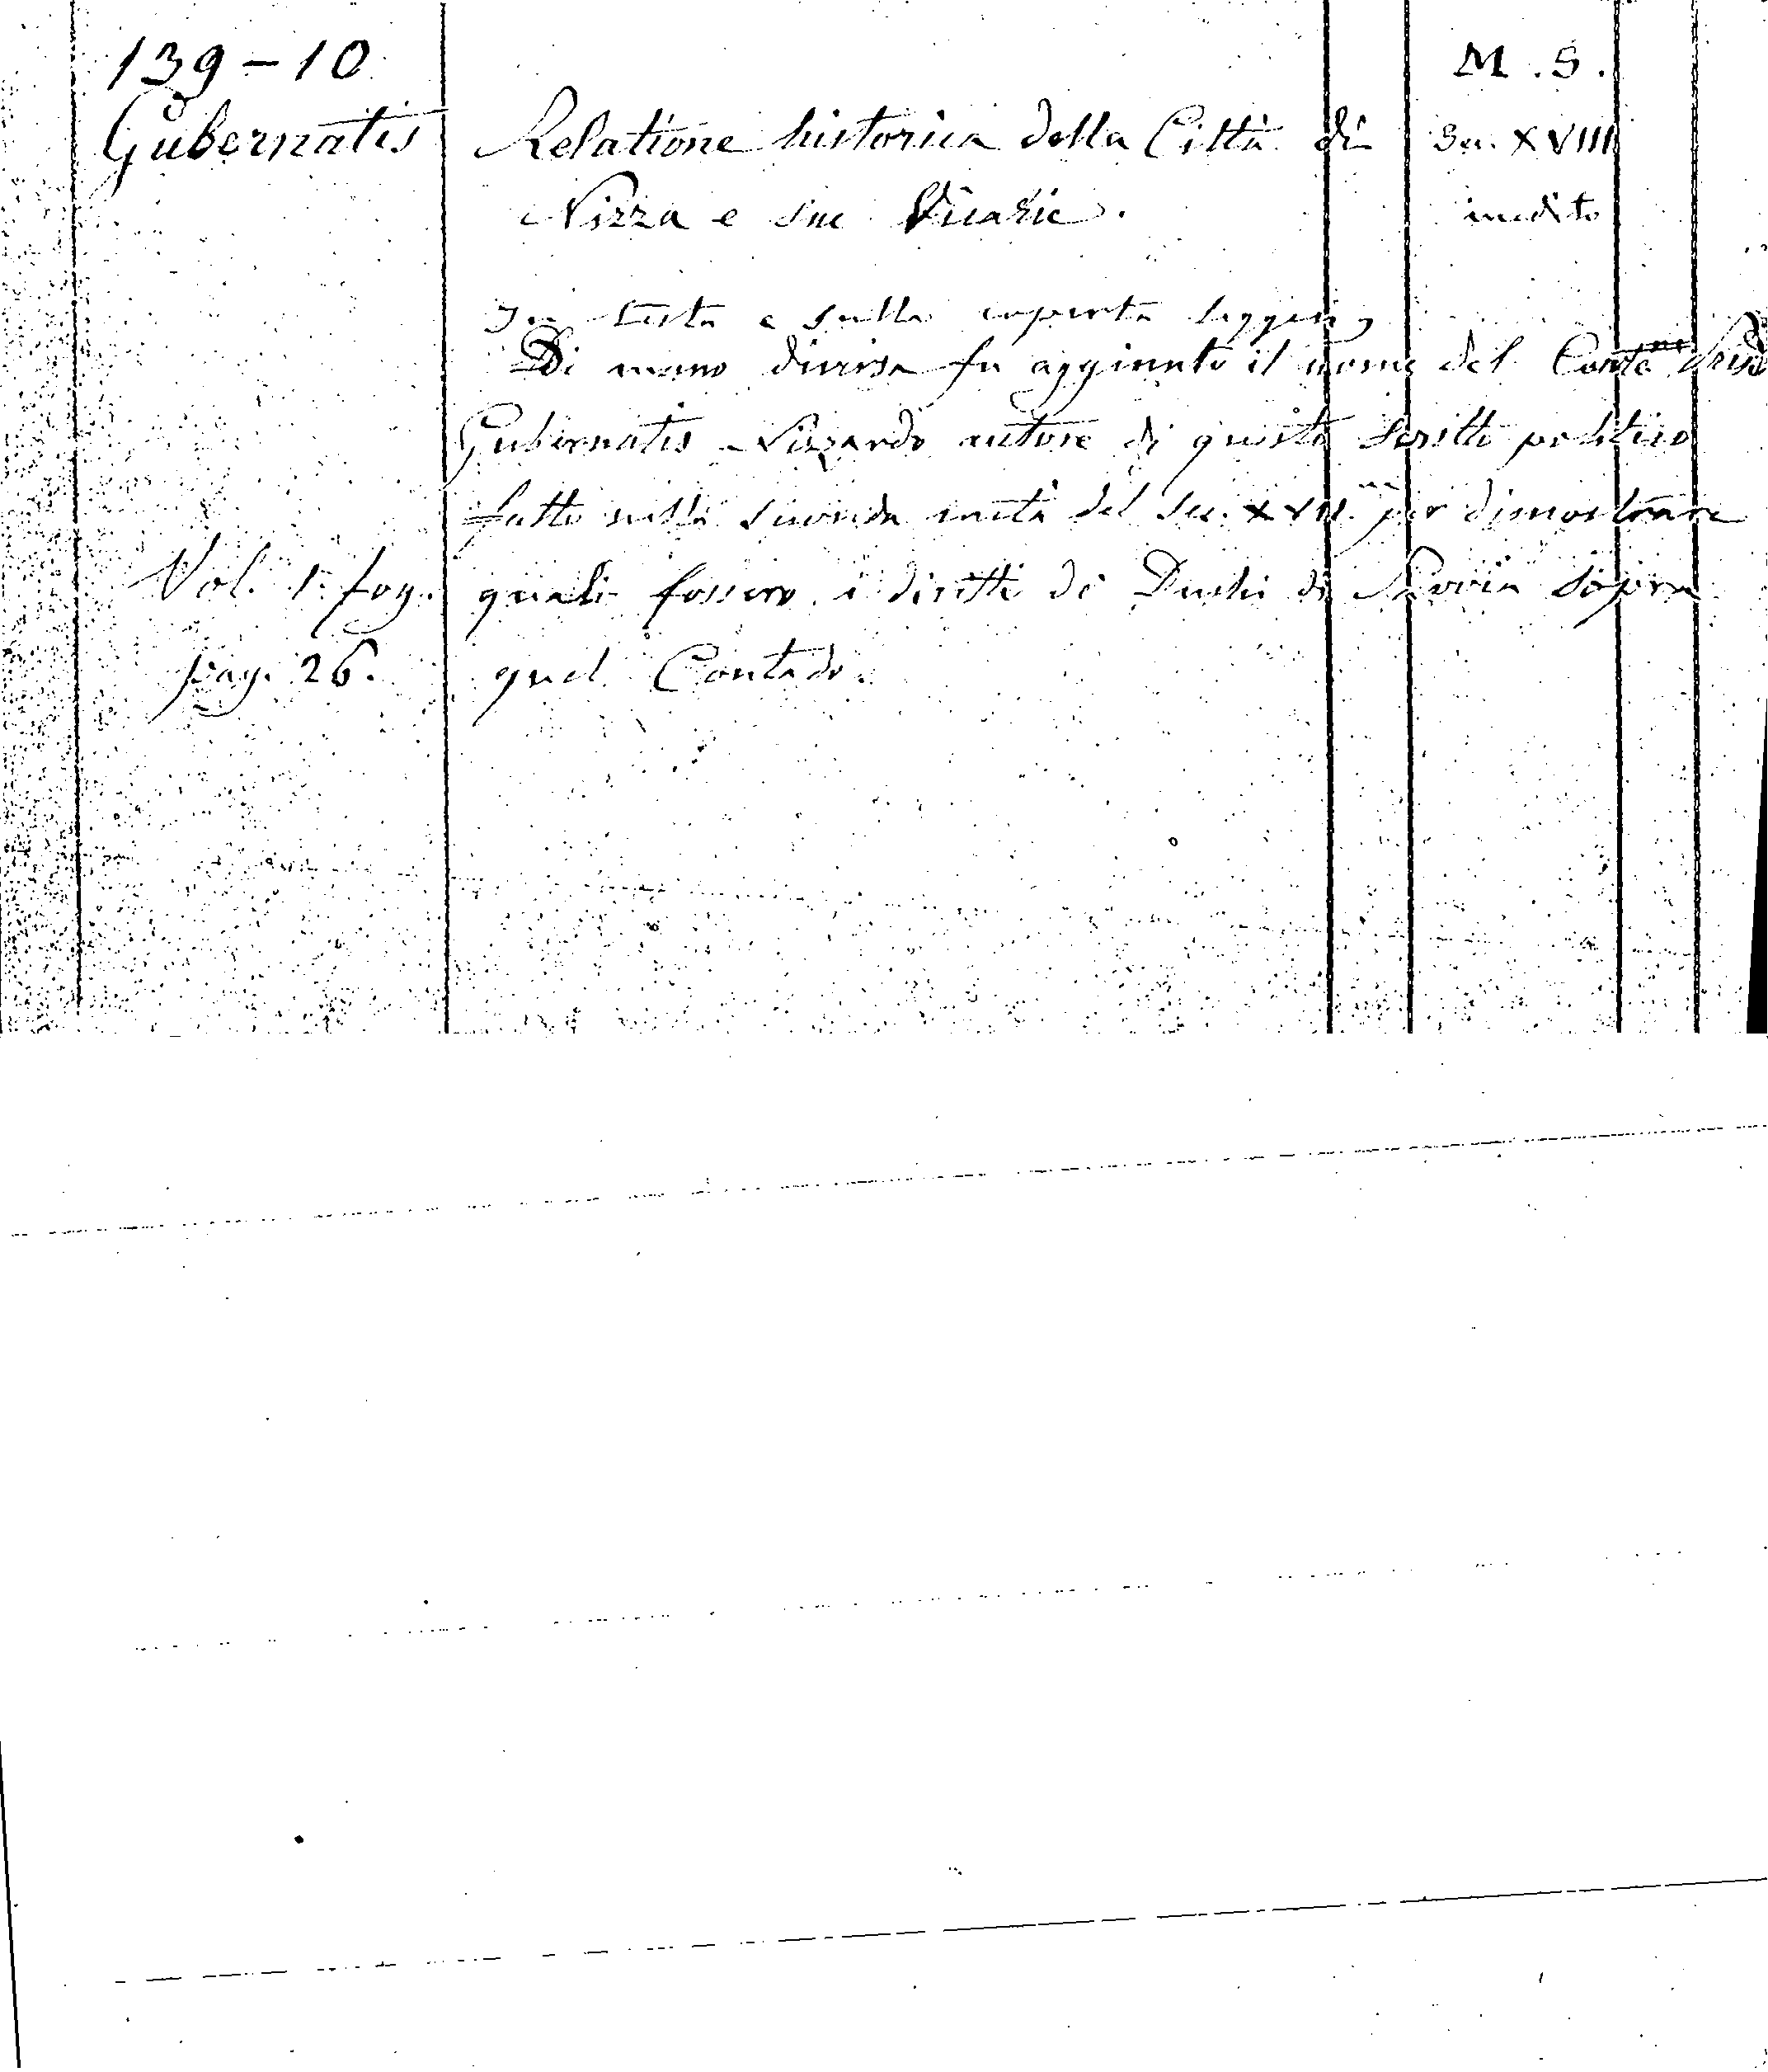 139-10
M. S.
Gubernatis
Relatione historica della Città di
Sec. XVIII
Nizza e sue Vicarie.
inedito
In testa e sulla coperta
Di mano diversa fu aggiunto il nome del Conte
Gubernatis Nizzardo autore di questo scritto politico
fatto nella seconda metà del Sec. XVII. per dimostrare
Vol. 1. fog.
quali fossero i diritti de Duchi di Savoia sopra
pag. 26.
quel Contado.